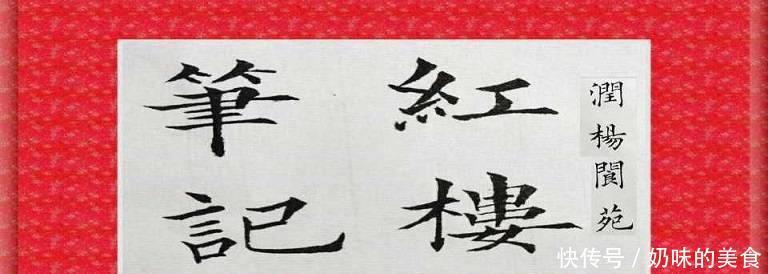 潤楊閬苑
紅樓
筆記
快传号 / 奶味的美食